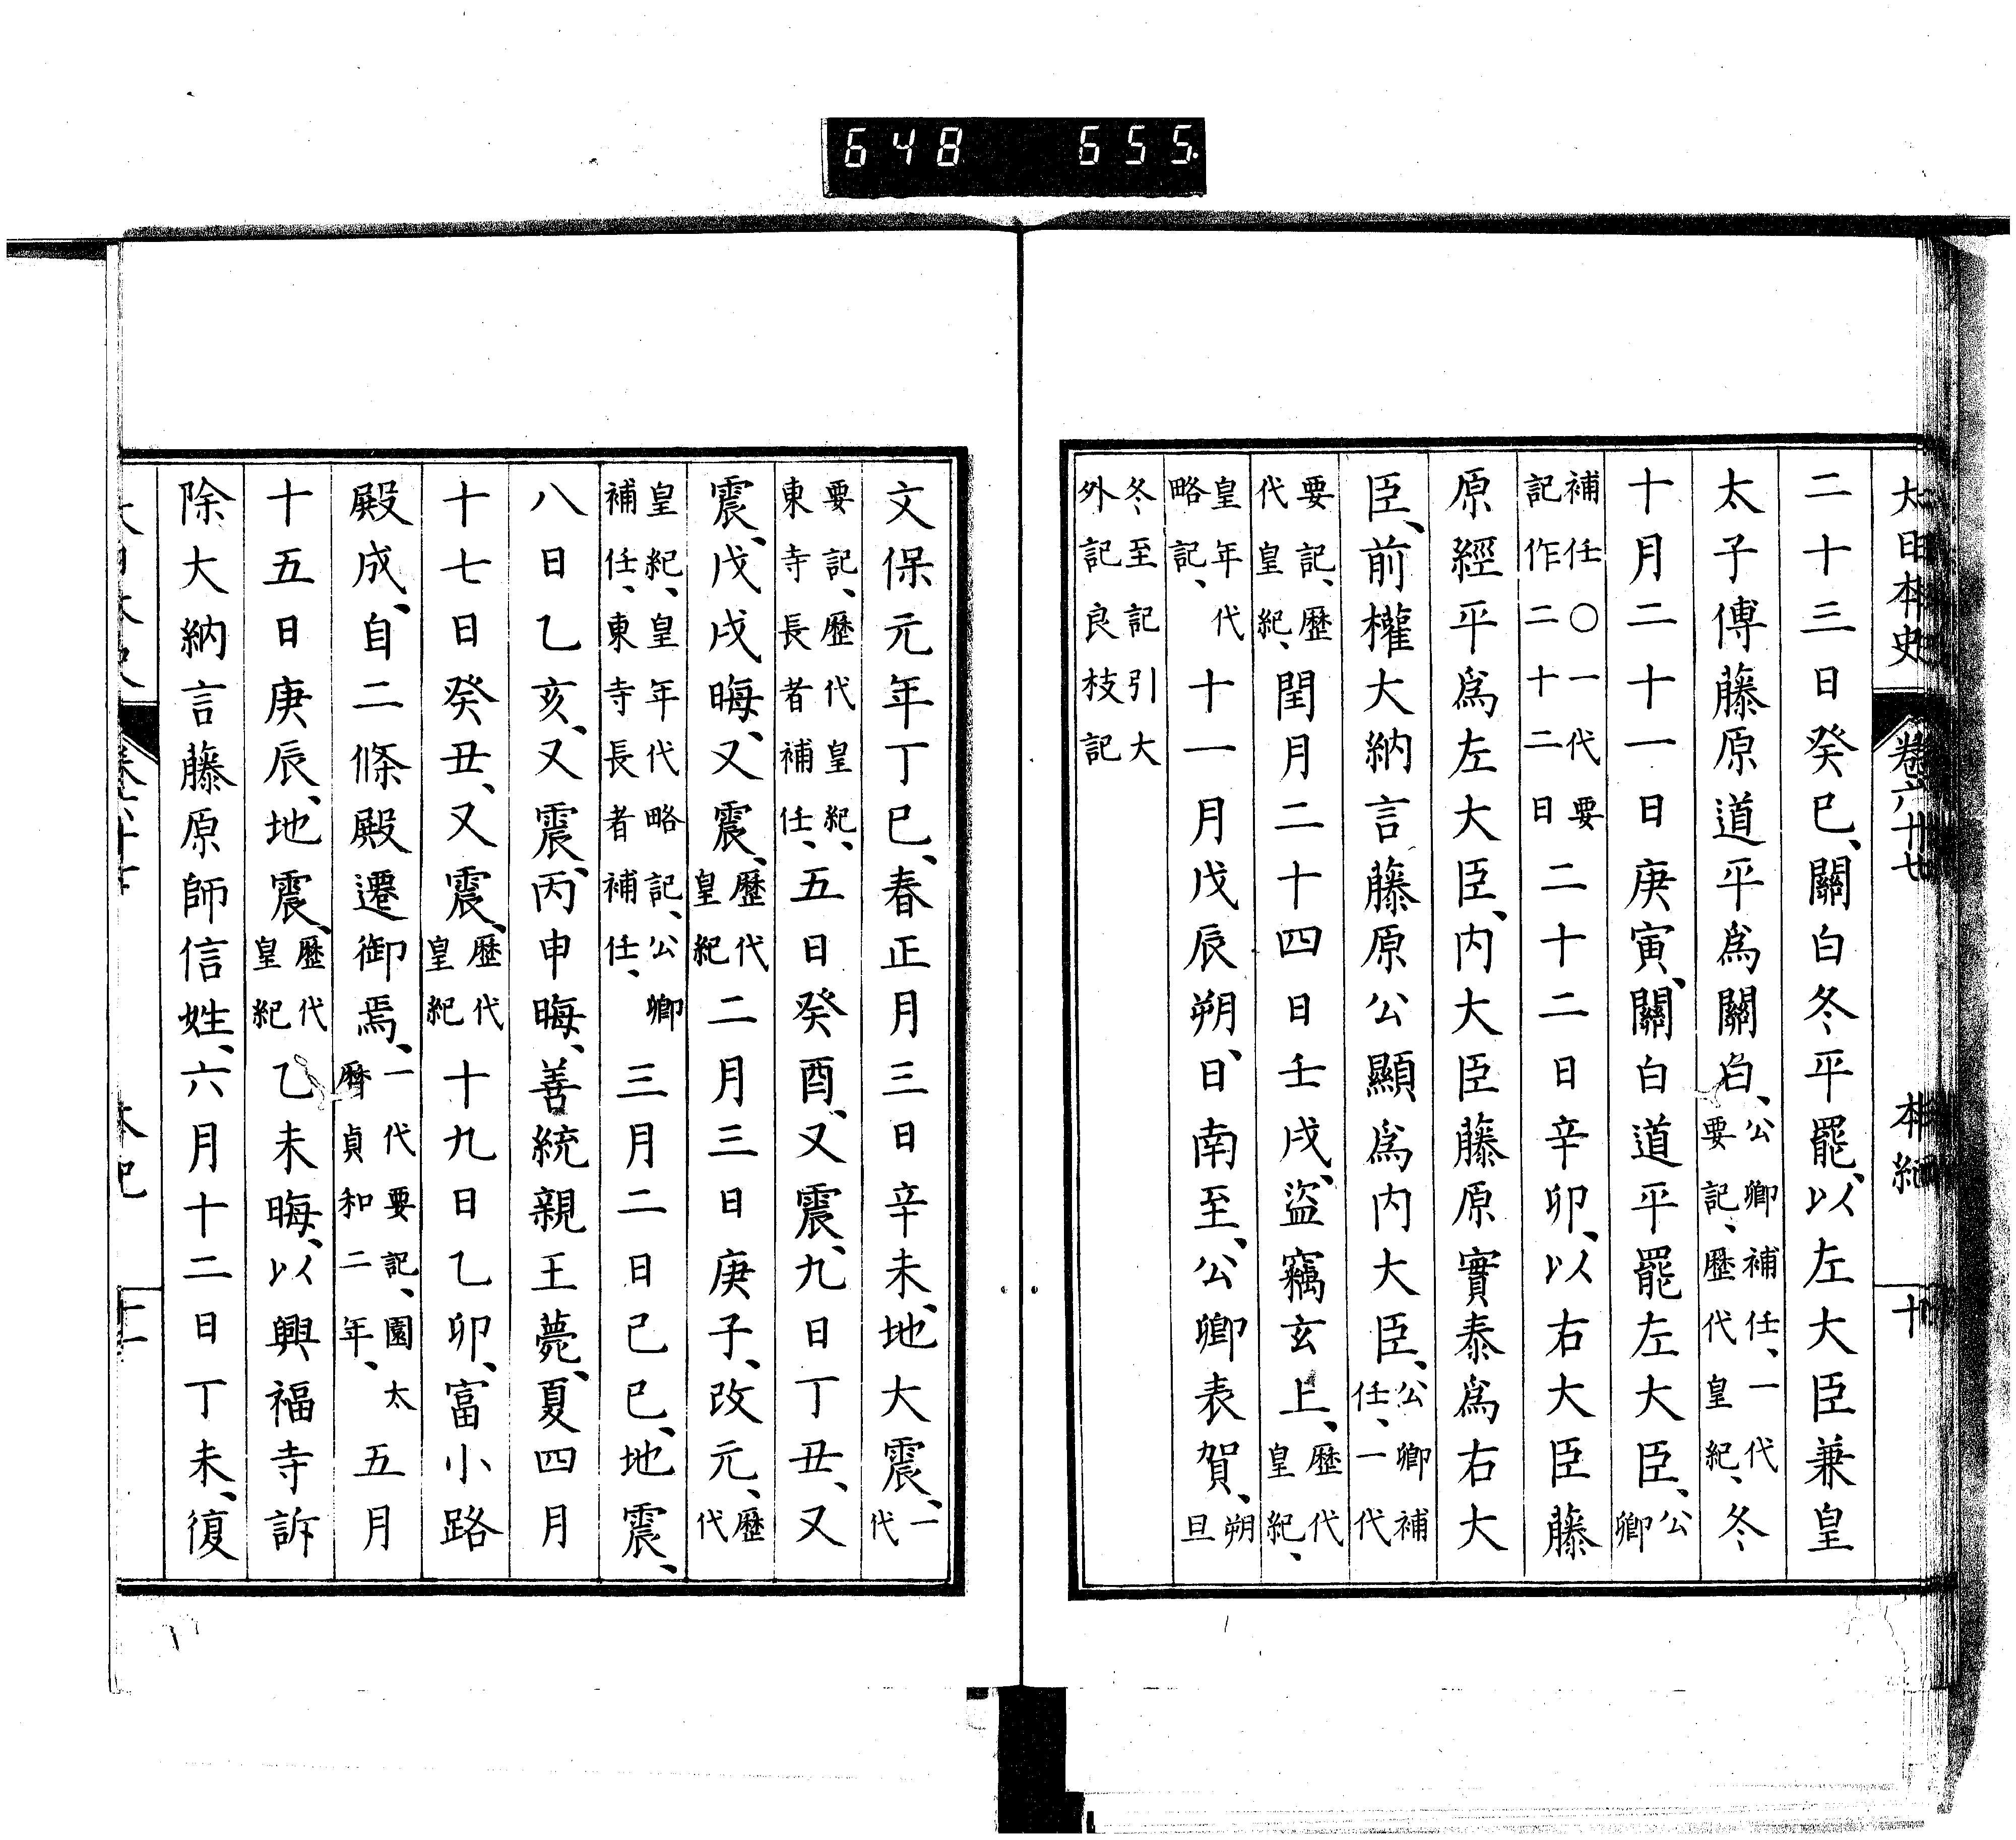 648 655.
大日本史 卷六十七 本紀 十
二十三日癸巳、關白冬平罷、以左大臣兼皇
太子傅藤原道平爲關白、公卿補任、一代要記、歷代皇紀、冬
十月二十一日庚寅、關白道平罷左大臣、公卿
補任〇一代要記作二十二日二十二日辛卯、以右大臣藤
原經平爲左大臣、内大臣藤原實泰爲右大
臣、前權大納言藤原公顯爲内大臣、公卿補任、一代
要記、歷代皇紀、閏月二十四日壬戌、盜竊玄上、歷代皇紀、
皇年代略記、十一月戊辰朔、日南至、公卿表賀、朔旦
冬至記引大外記良枝記
文保元年丁巳、春正月三日辛未、地大震、一代
要記、歷代皇紀、東寺長者補任、五日癸酉、又震、九日丁丑、又
震、戊戌晦、又震、歷代皇紀二月三日庚子、改元、歷代
皇紀、皇年代略記、公卿補任、東寺長者補任、三月二日己巳、地震、
八日乙亥、又震、丙申晦、善統親王薨、夏四月
十七日癸丑、又震、歷代皇紀十九日乙卯、富小路
殿成、自二條殿遷御焉、一代要記、園太曆貞和二年、五月
十五日庚辰、地震、歷代皇紀乙未晦、以興福寺訴
除大納言藤原師信姓、六月十二日丁未、復